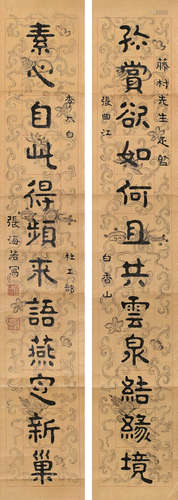 弥賞欲如何且共雲泉結緣境
藤村先生
張曲江
白香山
素心自此得頻求語燕定新巢
李太白
杜工部
張海若寫